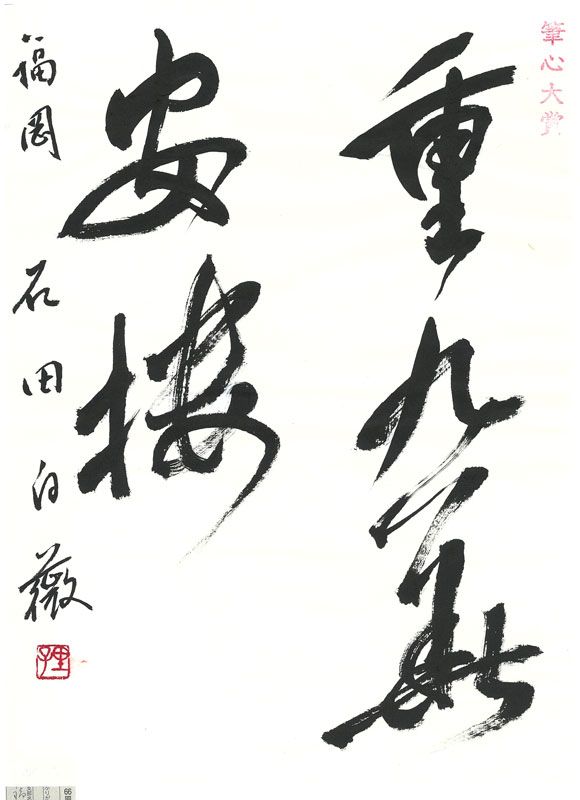 筆心大賞
重九
安楼
福岡 石田白薇